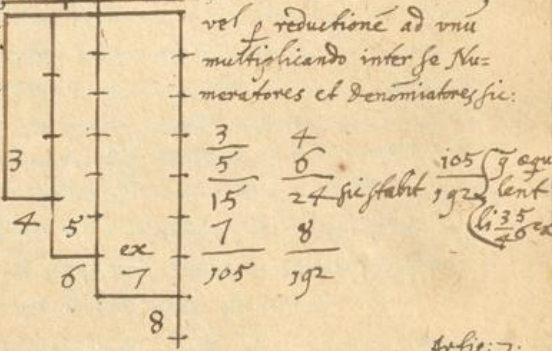 vel ꝑ reductionē ad vnū
multiplicando inter se Nu=
meratores et Denōmiatores sic:
3 4
5 6
15 24 sic stabit 105/192 q̄ equ
lent
7 8
li 35
ex
105 192
3
4 5 ex
6 7
8